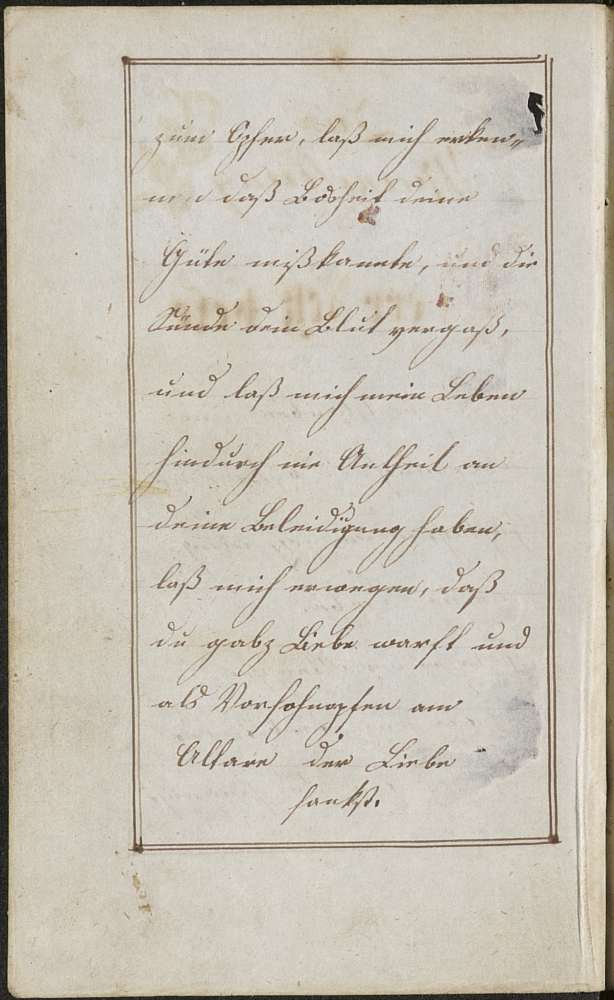 zum Opfer, laß mich erken„
nen daß Bosheit deine
Güte mißkannte, und die
Sünde dein Blut vergaß,
und laß mich mein Leben
hindurch nie Antheil an
deine Beleidigung haben,
laß mich erwegen, daß
du ganz Liebe warst und
als Versohnopfer am
Altare der Liebe
sankst.